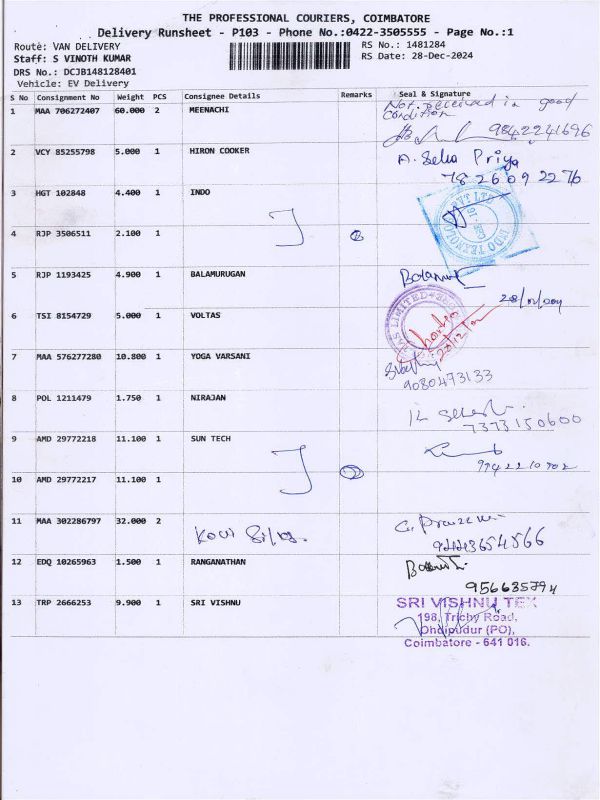 THE PROFESSIONAL COURIERS, COIMBATORE
Delivery Runsheet - P103 - Phone No.:0422-3505555 - Page No.:1
Route: VAN DELIVERY
RS No.: 1481284
Staff: S VINOTH KUMAR
RS Date: 28-Dec-2024
DRS No.: DCJB148128401
Vehicle: EV Delivery
S No Consignment No Weight PCS Consignee Details Remarks Seal & Signature
1 MAA 706272407 60.000 2 MEENACHI Not received in good
condition
9842241696
2 VCY 85255798 5.000 1 HIRON COOKER A. Selva Priya
78 26 09 22 76
3 HGT 102848 4.400 1 INDO
4 RJP 3506511 2.100 1
5 RJP 1193425 4.900 1 BALAMURUGAN
6 TSI 8154729 5.000 1 VOLTAS
7 MAA 576277280 10.800 1 YOGA VARSANI
9080473133
8 POL 1211479 1.750 1 NIRAJAN
7373150600
9 AMD 29772218 11.100 1 SUN TECH
10 AMD 29772217 11.100 1
11 MAA 302286797 32.000 2
12 EDQ 10265963 1.500 1 RANGANATHAN
13 TRP 2666253 9.900 1 SRI VISHNU SRI VISHNU TEX
198, Trichy Road,
Ohdipudur (PO),
Coimbatore - 641 016.